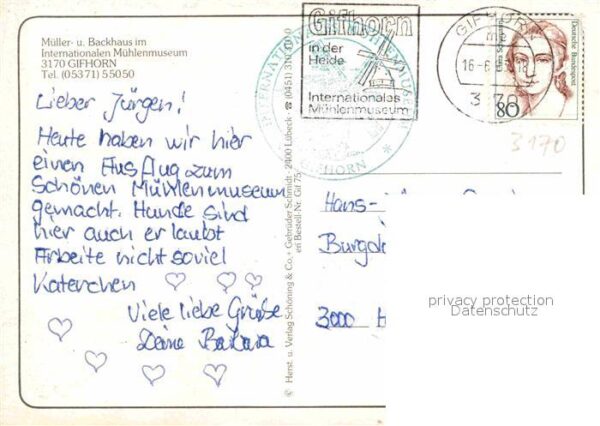 Müller- u. Backhaus im
Internationalen Mühlenmuseum
3170 GIFHORN
Tel. (05371) 55050
Lieber Jürgen!
Heute haben wir hier
einen Ausflug zum
Schönen Mühlenmuseum
gemacht. Hunde sind
hier auch erlaubt
Arbeite nicht soviel
Katerchen
Viele liebe Grüße
Deine
Herst. u. Verlag Schöning & Co. + Gebrüder Schmidt · 2400 Lübeck
Gifhorn
in der
Heide
Internationales
Mühlenmuseum
GIFHORN
GIFHORN
3170
Deutsche Bundespost
80
3170
Hans-
3000 H
privacy protection
Datenschutz